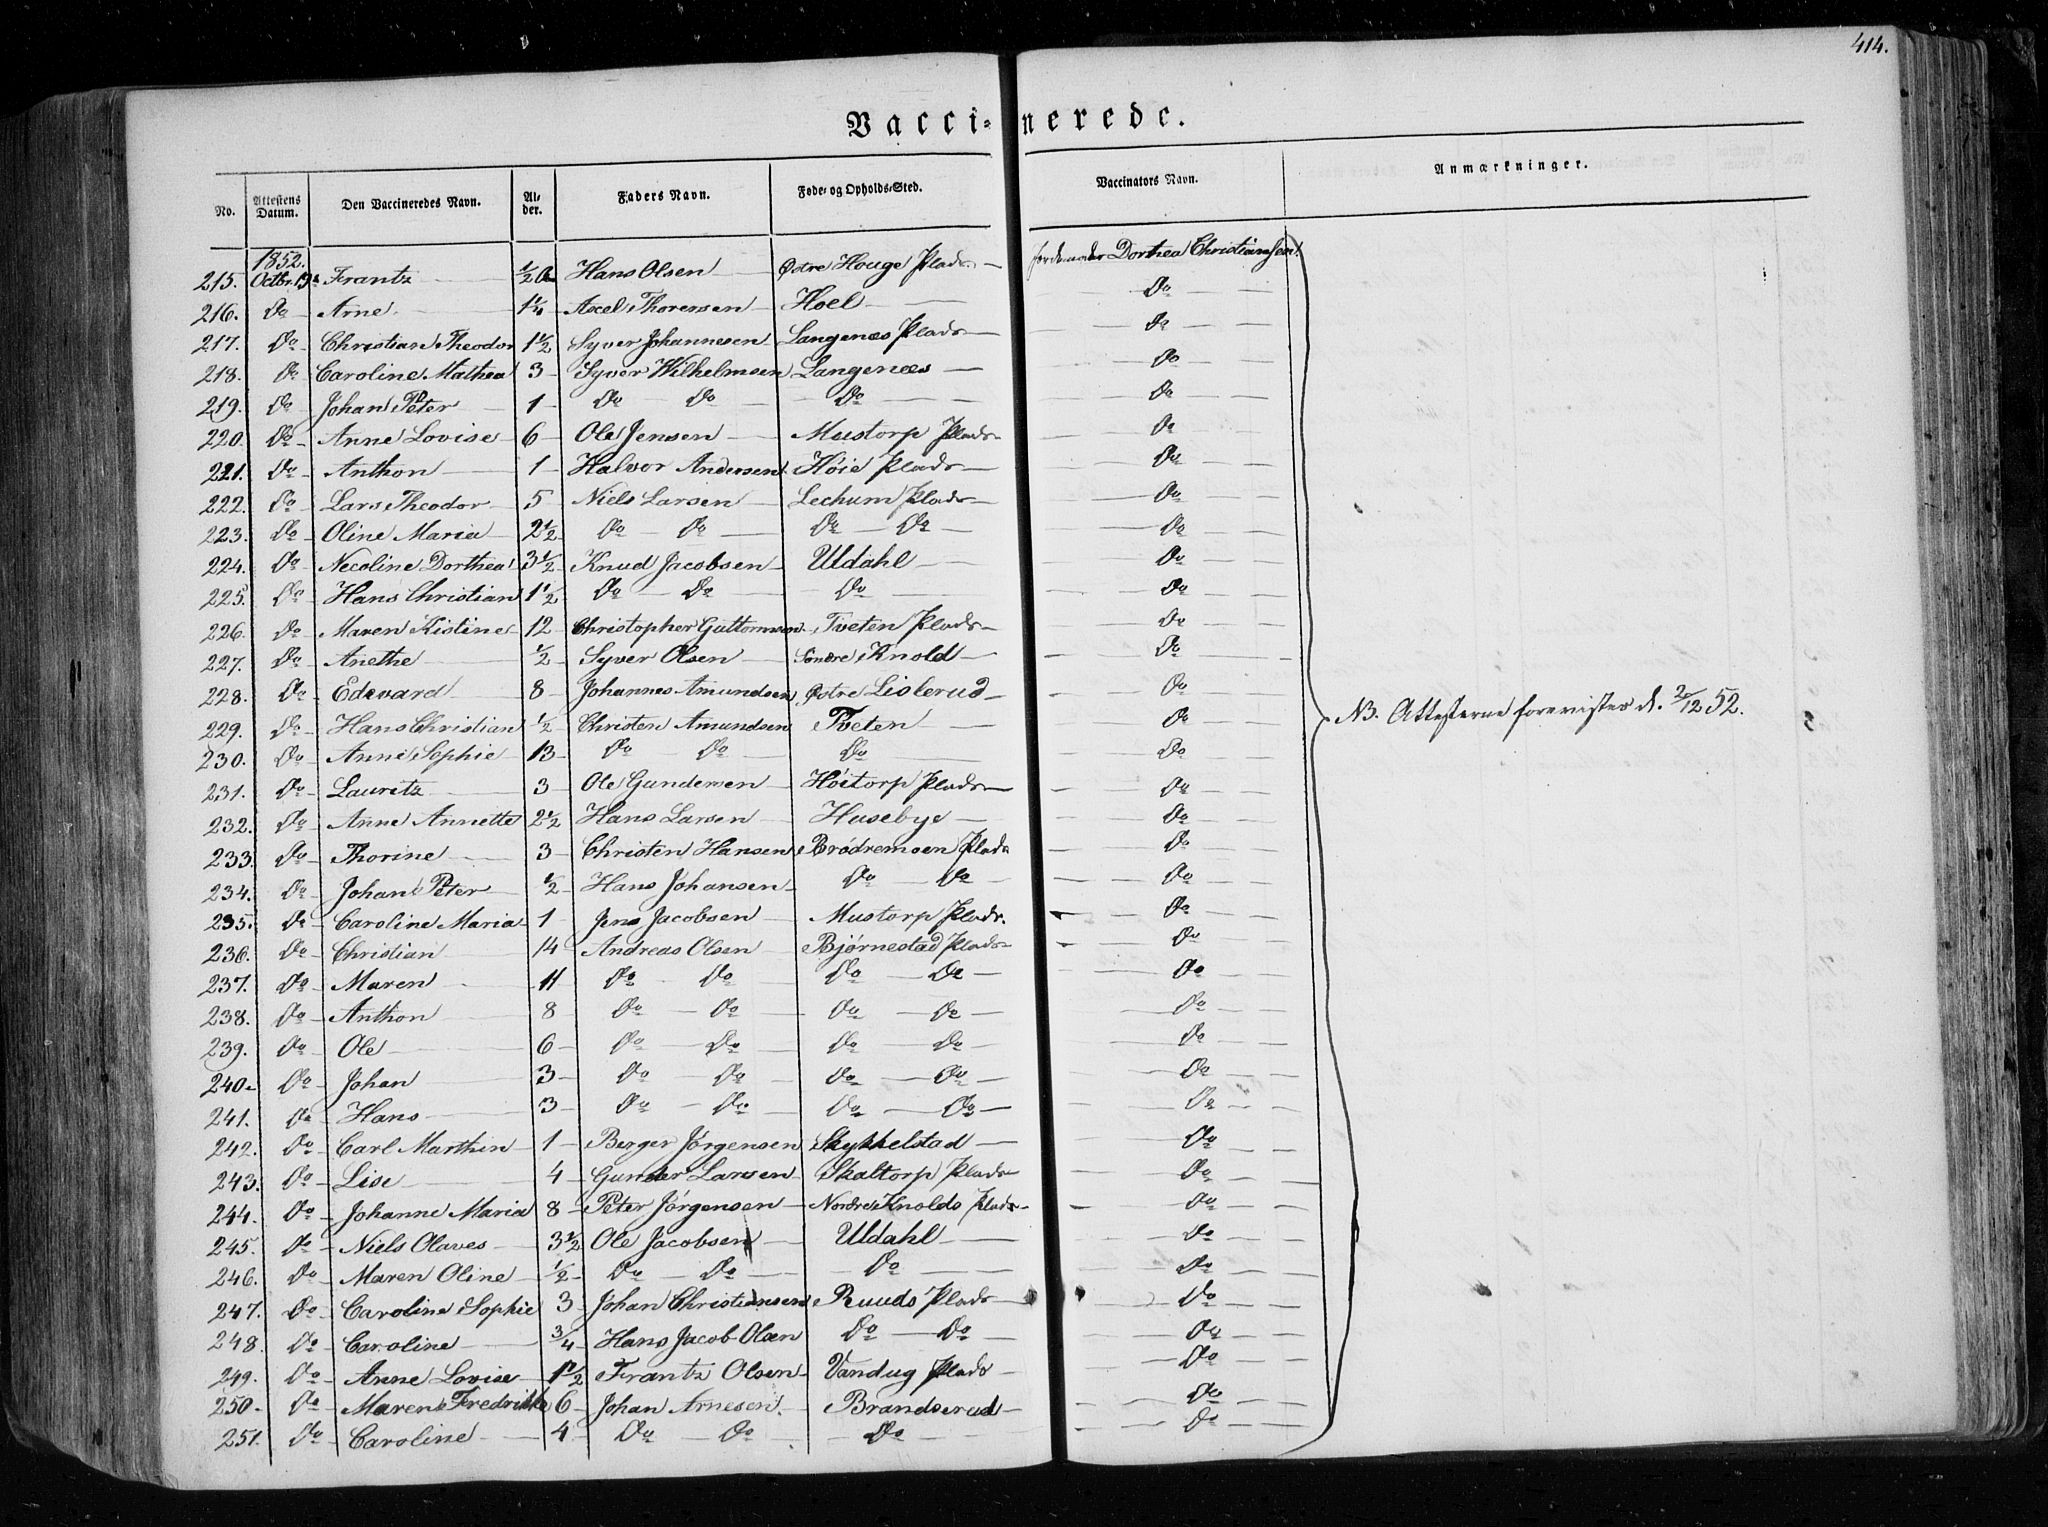 414.
Vaccinerede.
No. | Attestens Datum. | Den Vaccineredes Navn. | Alder. | Faders Navn. | Føde- og Opholds-Sted. | Vaccinators Navn. | Anmærkninger.
1852.
215. Octbr. 19de Frantz 1/2 Hans Olsen Østre Houge Plads Dorthea Christiansen
216. Do Arne 1 1/4 Axel Thorensen Hoel Do
217. Do Christian Theodor 1 1/2 Syver Johannesen Langenæs Plads Do
218. Do Caroline Mathea 3 Syver Wilhelmsen Langenæs Do
219. Do Johan Peter 1 Do Do Do Do
220. Do Anne Lovise 6 Ole Jensen Mustorp Plads Do
221. Do Anthon 1 Halvor Andersen Høie Plads Do
222. Do Lars Theodor 5 Niels Larsen Lechum Plads Do
223. Do Oline Maria 2 1/2 Do Do Do Do Do
224. Do Necoline Dorthea 3 1/2 Knud Jacobsen Uldahl Do
225. Do Hans Christian 1 1/2 Do Do Do Do
226. Do Maren Kistine 12 Christopher Guttormsen Tveten Plads Do
227. Do Anethe 1/2 Syver Olsen Søndre Knold Do
228. Do Edevard 8 Johannes Amundsen Østre Lislerud Do
229. Do Hans Christian 1/2 Christen Amundsen Tveten Do NB. Attesterne forevistes d. 2/12 52.
230. Do Anne Sophie 13 Do Do Do Do
231. Do Lauritz 3 Ole Gundersen Høitorp Plads Do
232. Do Anne Annette 2 1/2 Hans Larsen Husebye Do
233. Do Thorine 3 Christen Hansen Brødremoen Plads Do
234. Do Johan Peter 1/2 Hans Johansen Do Do Do
235. Do Caroline Maria 1 Jens Jacobsen Mustorp Plads. Do
236. Do Christian 14 Andreas Olsen Bjørnestad Plads Do
237. Do Maren 11 Do Do Do Do Do
238. Do Anthon 8 Do Do Do Do Do
239. Do Ole 6 Do Do Do Do Do
240. Do Johan 3 Do Do Do Do Do
241. Do Hans 3 Do Do Do Do Do
242. Do Carl Marthin 1 Berger Jørgensen Skykkelstad Do
243. Do Lise 4 Gunder Larsen Skaltorp Plads Do
244. Do Johanne Maria 8 Peter Jørgensen Nordre Knolds Plads Do
245. Do Niels Olaves 3 1/2 Ole Jacobsen Uldahl Do
246. Do Maren Oline 1/2 Do Do Do Do
247. Do Caroline Sophie 3 Johan Christiansen Ruuds Plads Do
248. Do Caroline 3/4 Hans Jacob Olsen Do Do Do
249. Do Anne Lovise 1 1/2 Frantz Olsen Vandug Plads Do
250. Do Maren Fredrikke 6 Johan Arnesen Brandserud Do
251. Do Caroline 4 Do Do Do Do